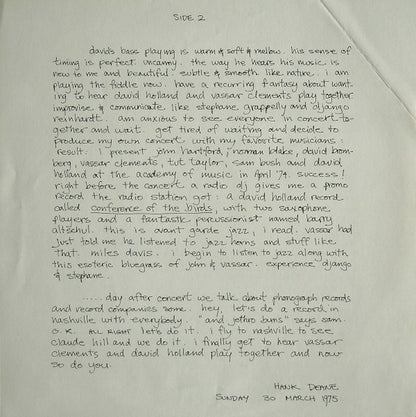 SIDE 2
davids bass playing is warm & soft & mellow. his sense of
timing is perfect. uncanny. the way he hears his music is
new to me and beautiful. subtle & smooth like nature. i am
playing the fiddle now. have a recurring fantasy about want-
ing to hear david holland and vassar clements play together
improvise & communicate like stephane grappelly and django
reinhardt. am anxious to see everyone in concert to-
gether and wait. get tired of waiting and decide to
produce my own concert with my favorite musicians.
result: i present john hartford, norman blake, david brom-
berg, vassar clements, tut taylor, sam bush and david
holland at the academy of music in april '74. success!
right before the concert a radio dj gives me a promo
record the radio station got: a david holland record
called conference of the birds, with two saxophone
players and a fantastic percussionist named barry
altschul. this is avant garde jazz, i read. vassar had
just told me he listened to jazz horns and stuff like
that. miles davis. i begin to listen to jazz along with
this esoteric bluegrass of john & vassar. experience django
& stephane.
......day after concert we talk about phonograph records
and record companies some. hey, let's do a record in
nashville with everybody. "and jethro burns" says sam.
O.K. ALL RIGHT let's do it. i fly to nashville to see
claude hill and we do it. i finally get to hear vassar
clements and david holland play together and now
so do you.
HANK DEANE
SUNDAY 30 MARCH 1975